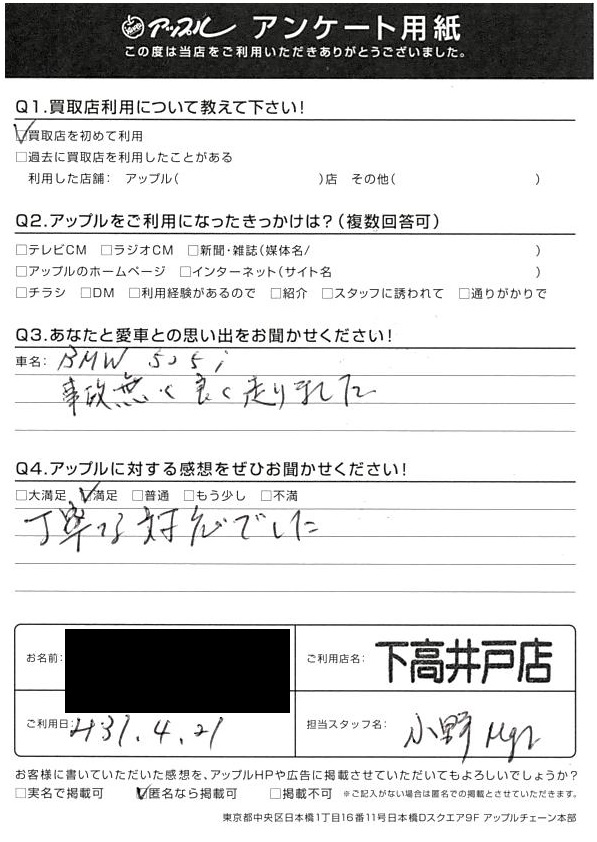 アップル アンケート用紙
この度は当店をご利用いただきありがとうございました。
Q1.買取店利用について教えて下さい!
☑買取店を初めて利用
□過去に買取店を利用したことがある
利用した店舗: アップル( )店 その他( )
Q2.アップルをご利用になったきっかけは?(複数回答可)
□テレビCM □ラジオCM □新聞・雑誌(媒体名/ )
□アップルのホームページ □インターネット(サイト名 )
□チラシ □DM □利用経験があるので □紹介 □スタッフに誘われて □通りがかりで
Q3.あなたと愛車との思い出をお聞かせください!
車名: BMW 525i
事故無く良く走りました
Q4.アップルに対する感想をぜひお聞かせください!
□大満足 ☑満足 □普通 □もう少し □不満
丁寧な対応でした
お名前: ご利用店名: 下高井戸店
ご利用日: H31.4.21 担当スタッフ名: 小野 Mgr
お客様に書いていただいた感想を、アップルHPや広告に掲載させていただいてもよろしいでしょうか?
□実名で掲載可 ☑匿名なら掲載可 □掲載不可 ※ご記入がない場合は匿名での掲載とさせていただきます。
東京都中央区日本橋1丁目16番11号日本橋Dスクエア9F アップルチェーン本部